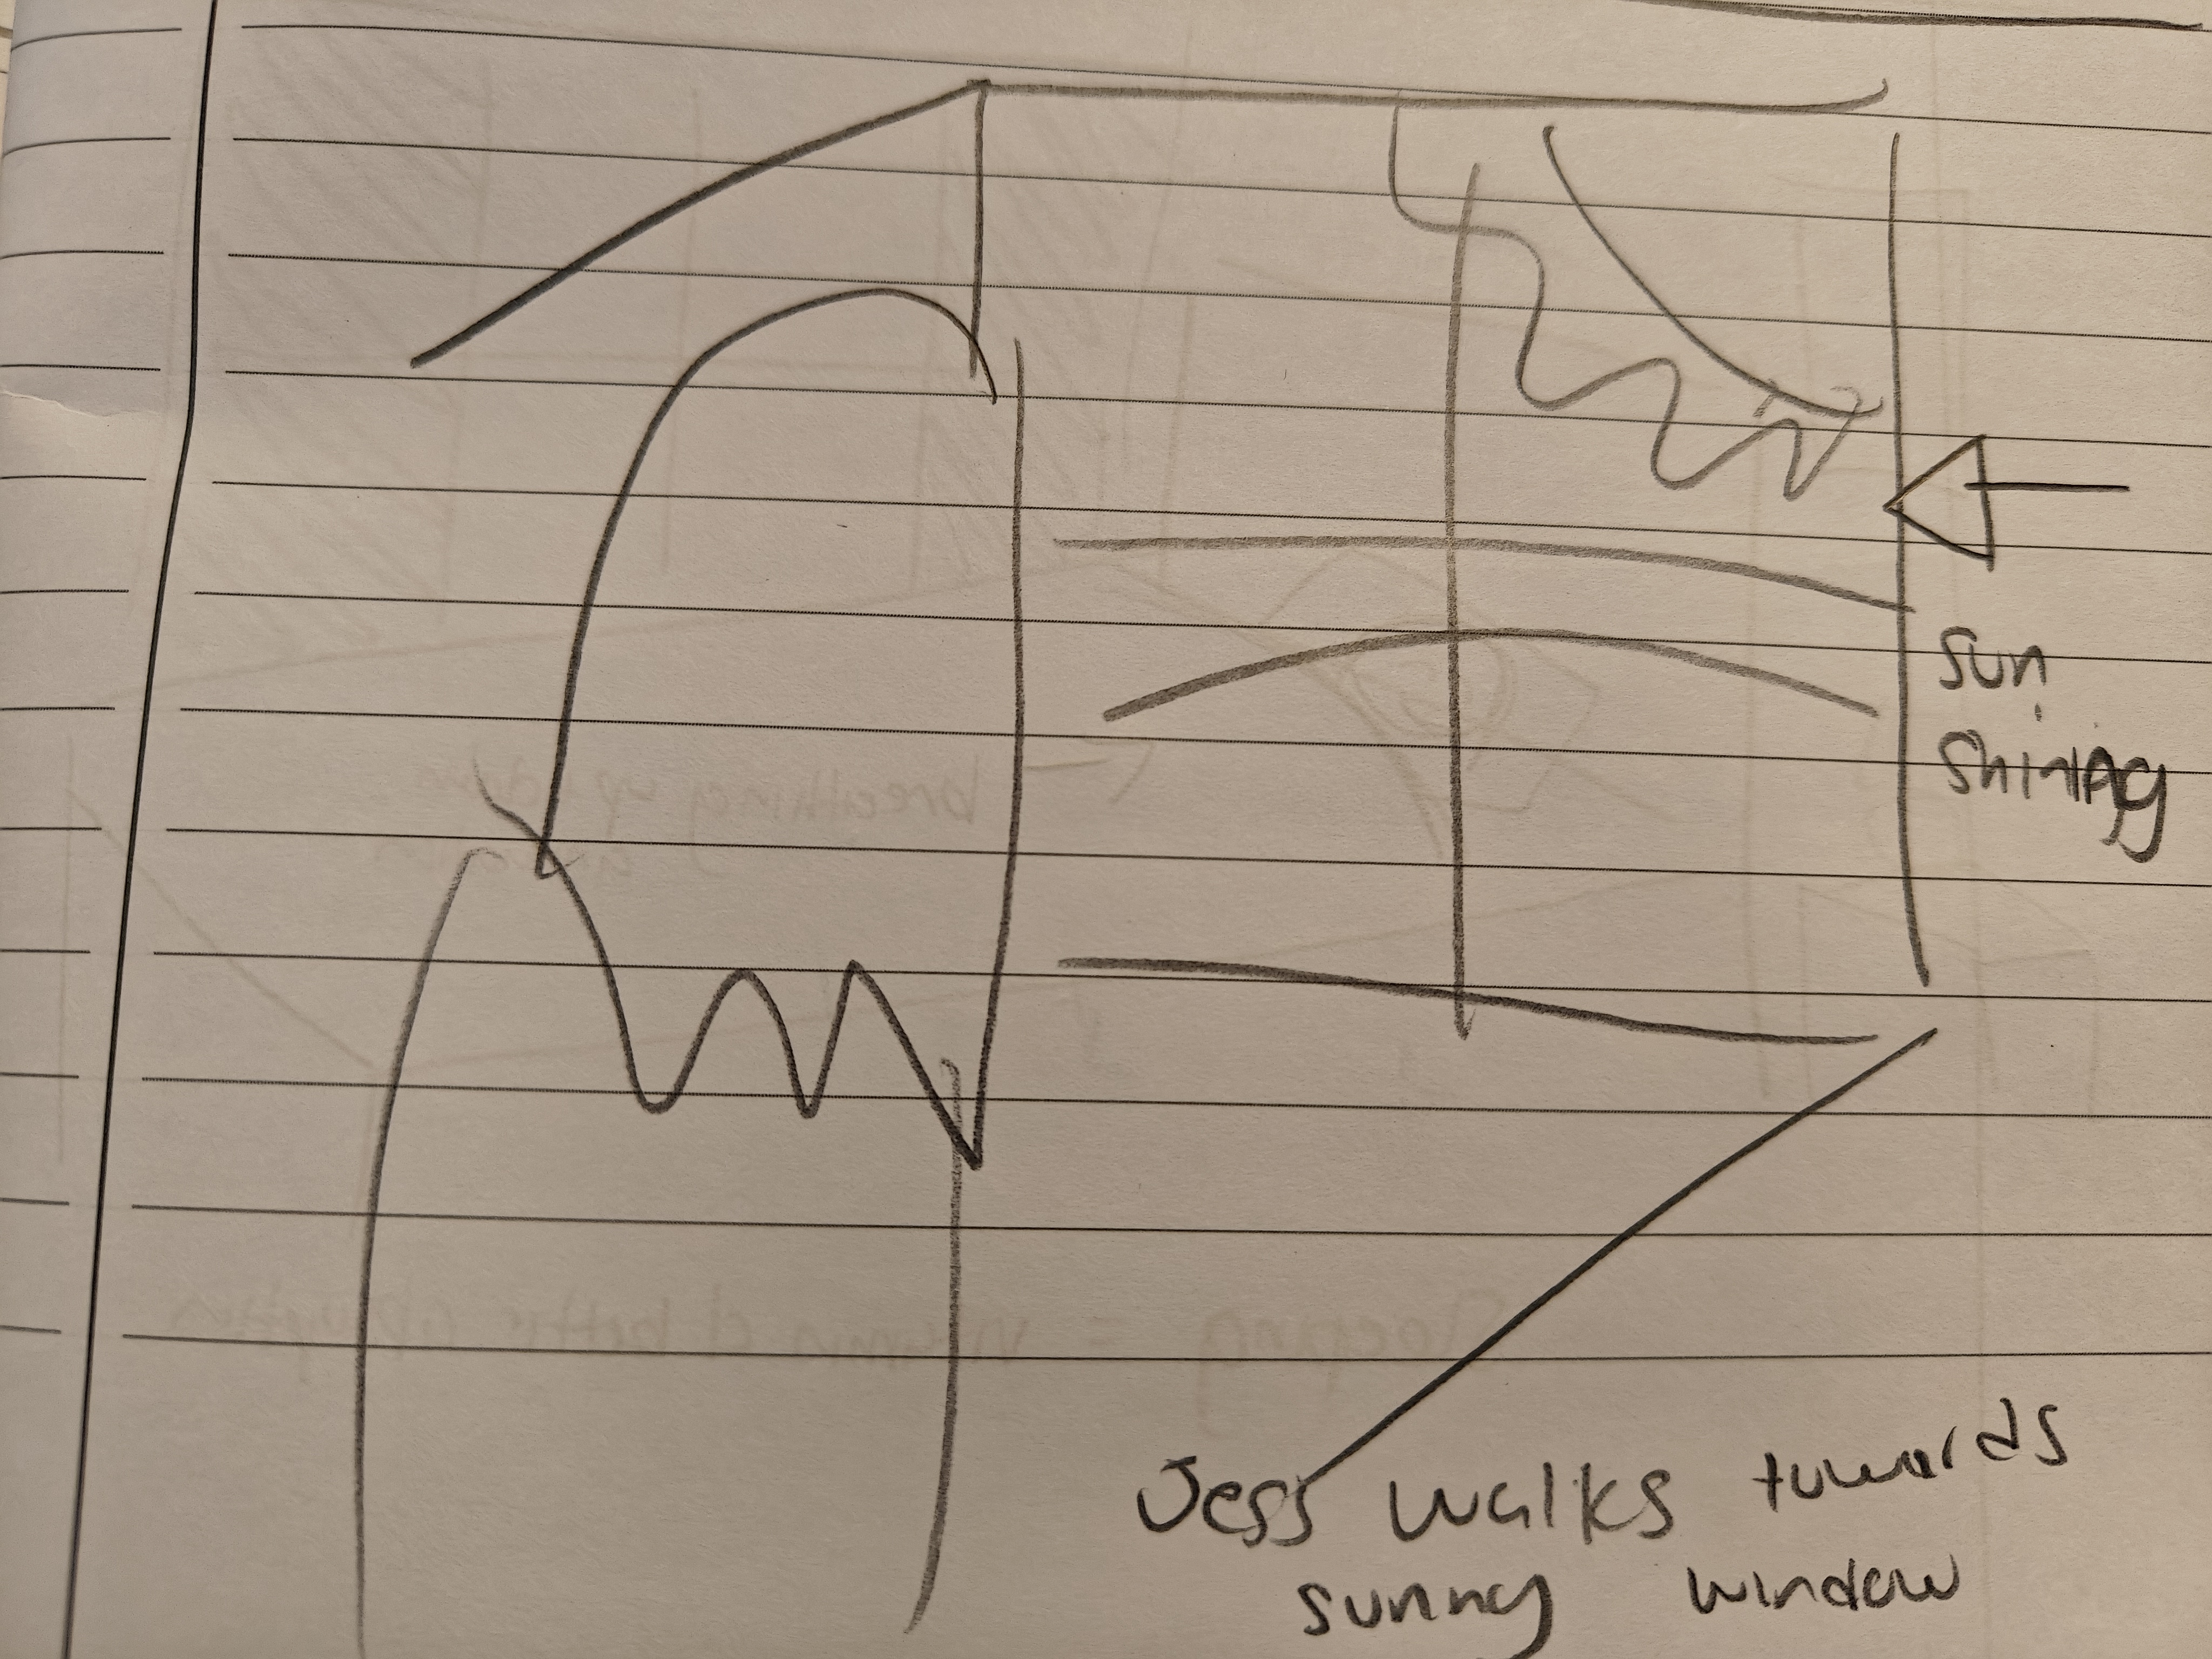 Sun
Shining
Jess walks towards
sunny window